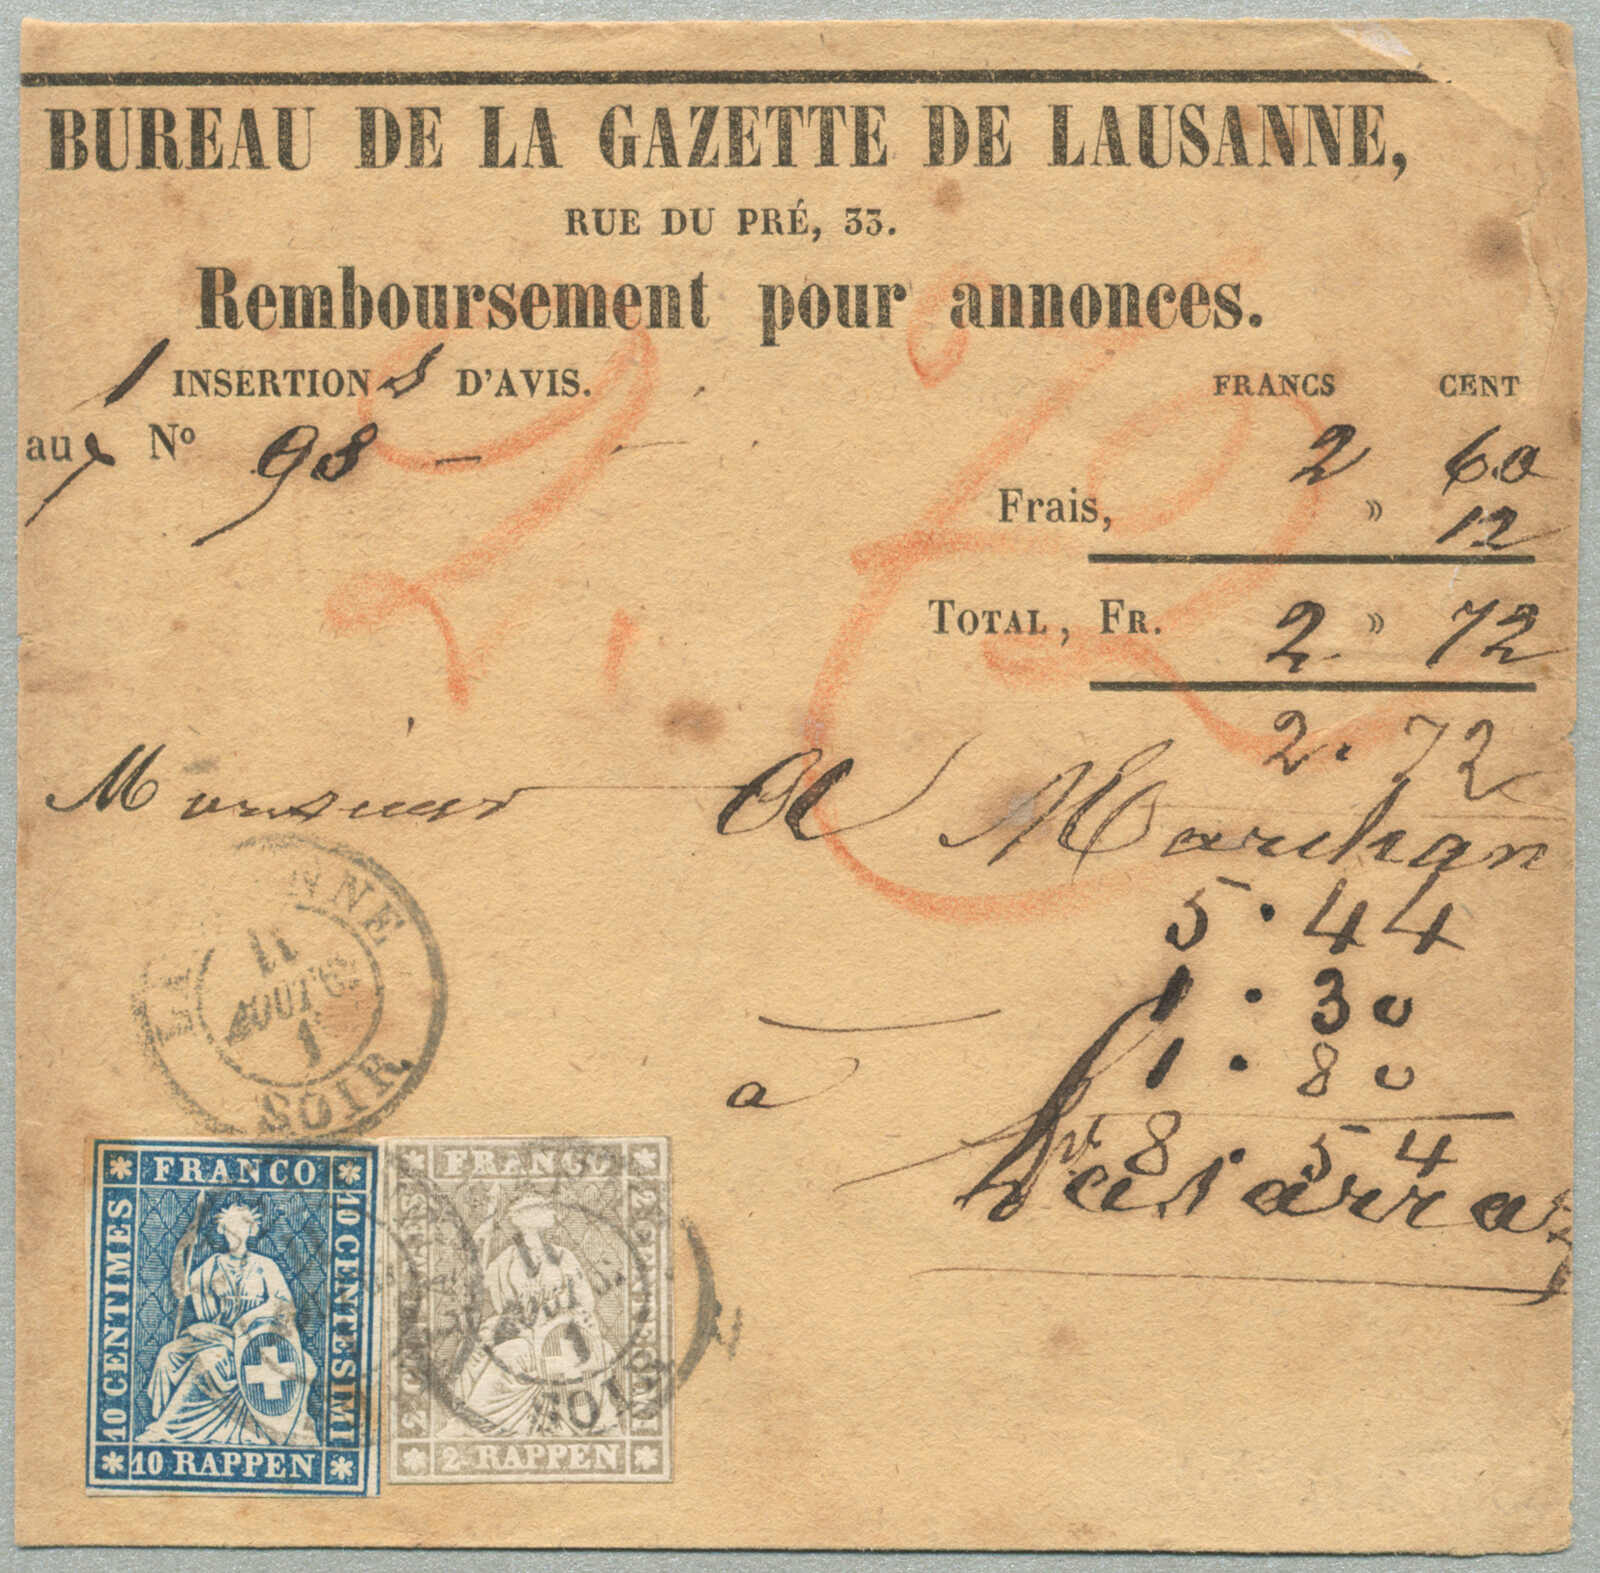 BUREAU DE LA GAZETTE DE LAUSANNE,
RUE DU PRÉ, 33.
Remboursement pour annonces.
1 INSERTION D'AVIS. FRANCS CENT
au No 98 2 60
Frais, » 12
TOTAL, FR. 2 » 72
2. 72
Monsieur Marchan
5. 44
1. 30
1. 80
à
8. 54
Lasarraz
NNE
11
AOUT 62
1
SOIR
FRANCO
10 CENTIMES
10 CENTESIMI
10 RAPPEN
FRANCO
2 RAPPEN
11
AOUT
1
SOIR